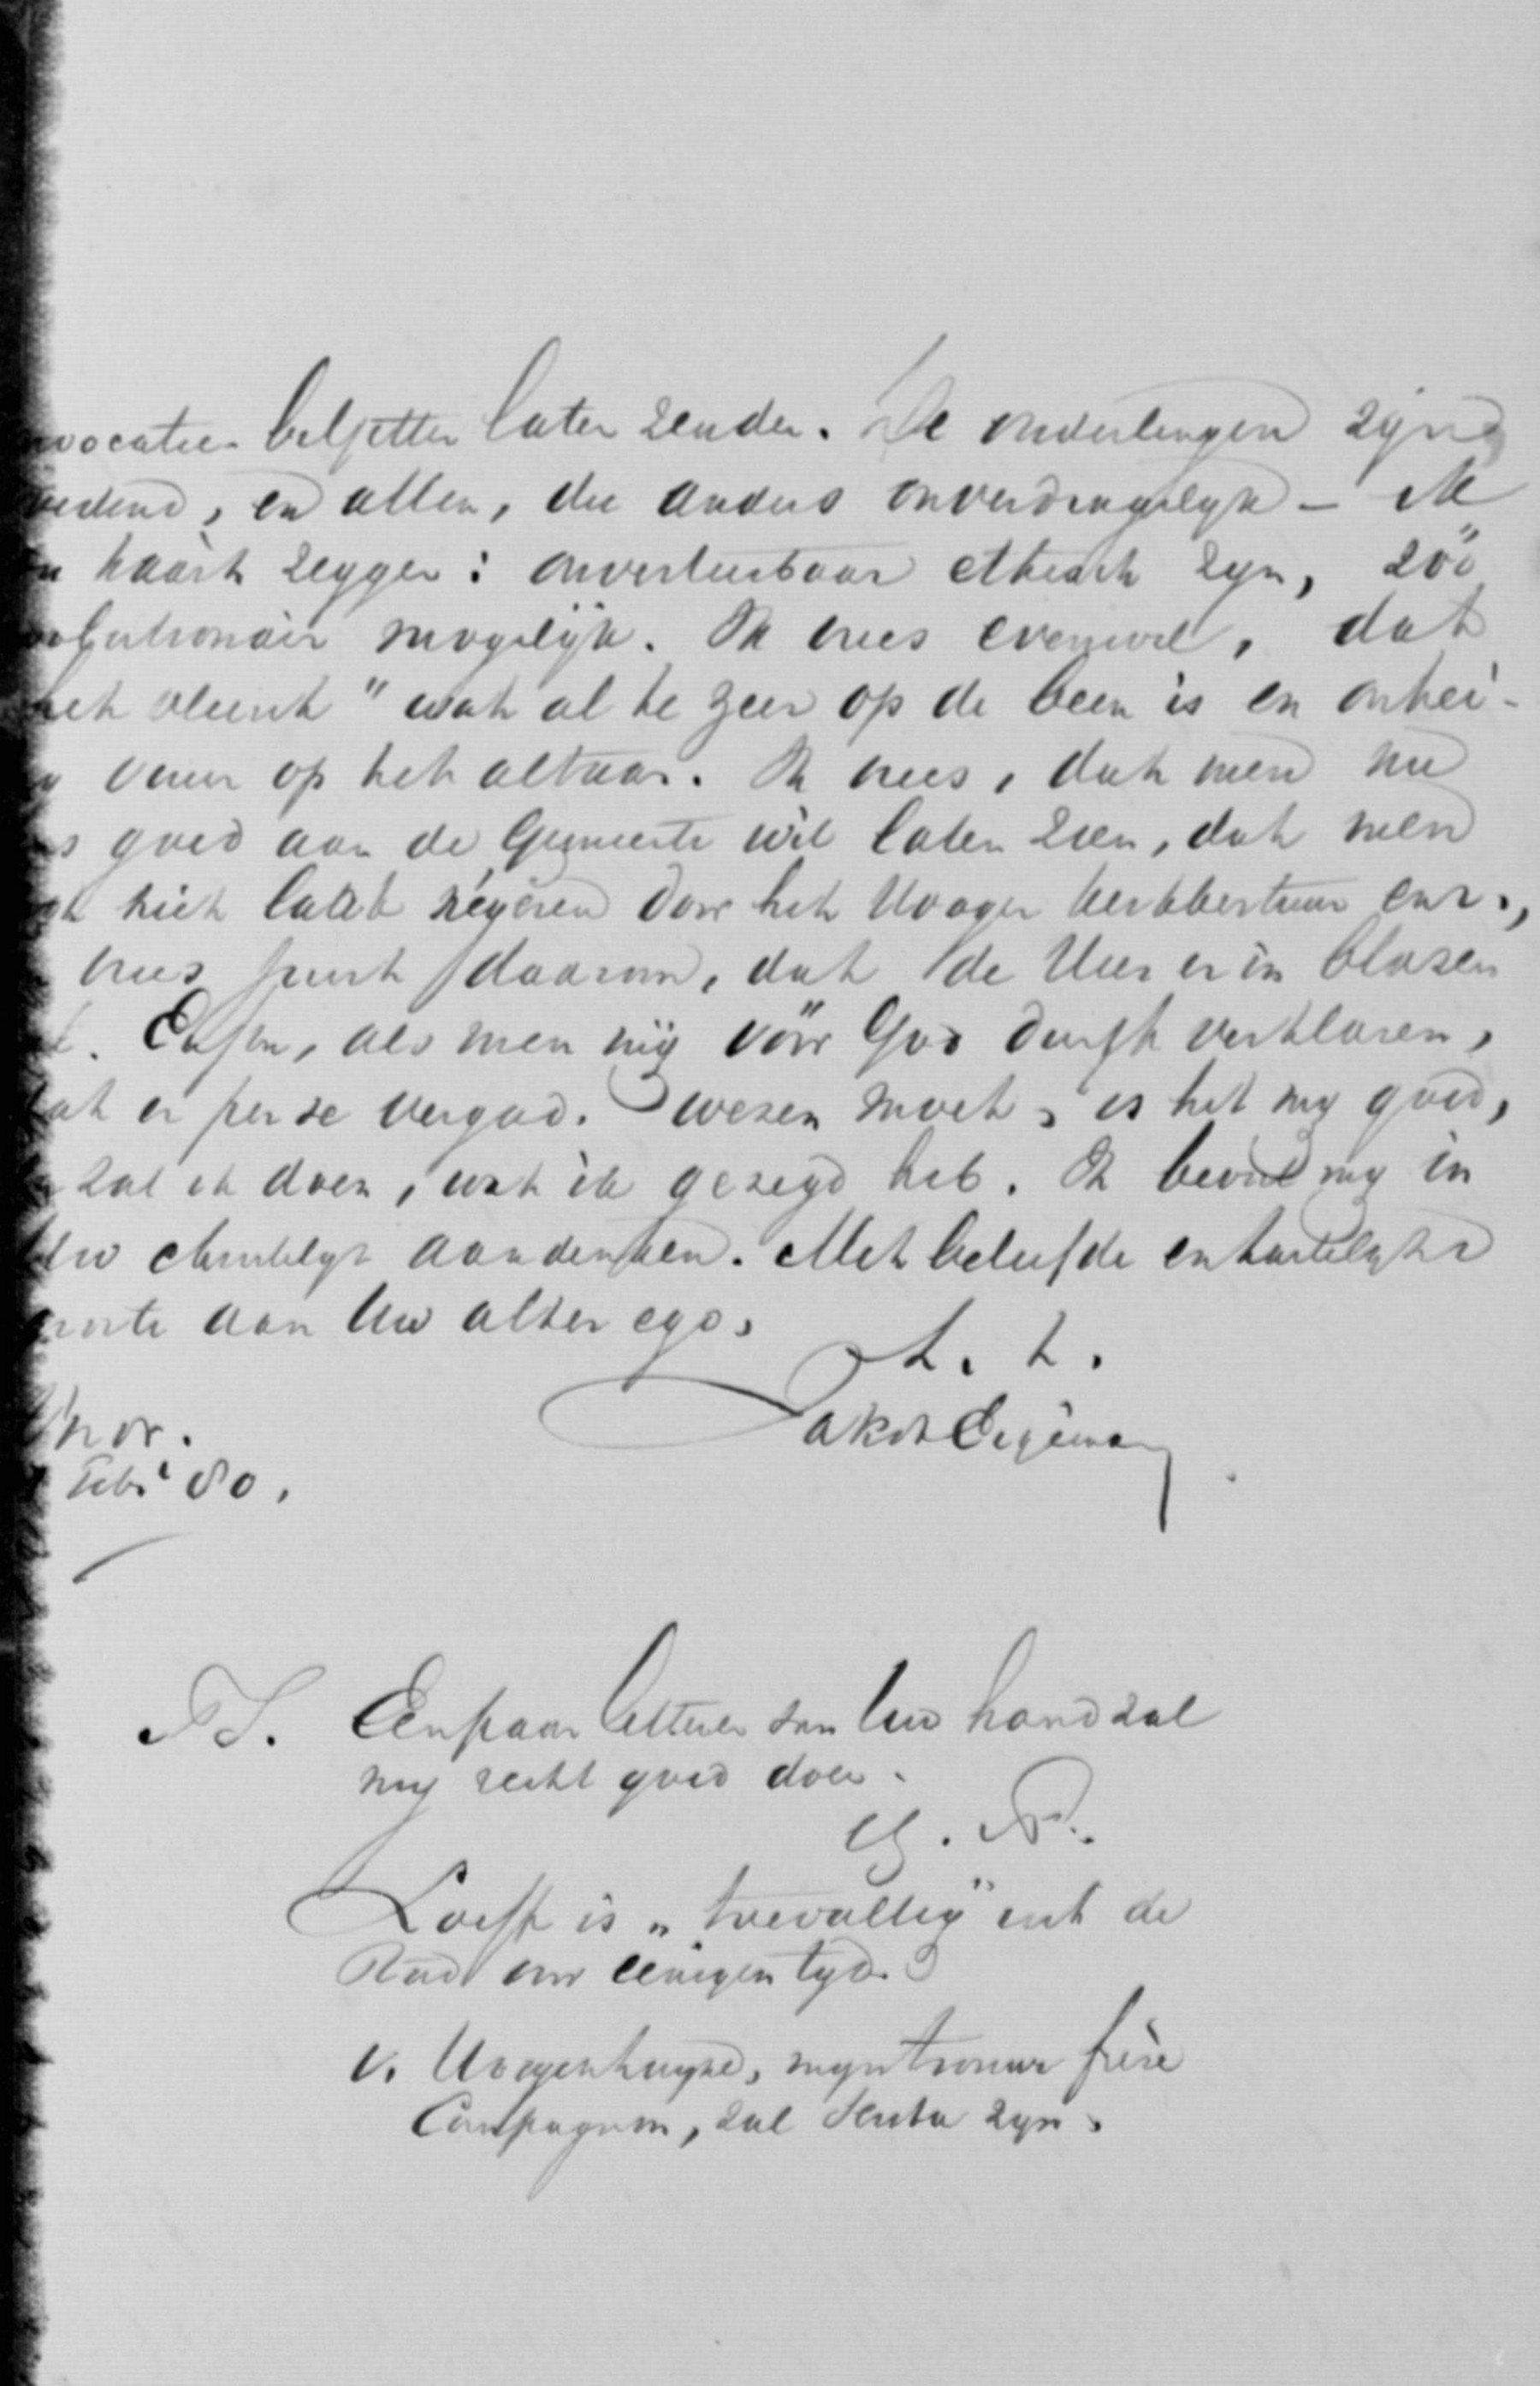 vocatie-biljetten later zenden. De ouderlingen zijn
woedend, en allen, die anders onverdragelyk - ik
haast zeggen: onverteerbaar ethisch zyn, zóó
revolutionair mogelijk. Ik vrees evenwel, dat
het vleesch" wat al te zeer op de been is en onhei-
vuur op het altaar. Ik vrees, dat men nu
goed aan de Gemeente wil laten zien, dat men
niet laat regeren door het Hooger kerkbestuur enz.,
vrees juist daarom, dat de Heer er in blazen
Enfin, als men mij vóór God durft verklaren,
dat er per se vergad. wezen moet, is het my goed,
zal ik doen, wat ik gezegd heb. Ik beveel my in
Uw christelyk aandenken. Met beleefde en hartelyke
groete aan Uw alter ego,
t. t.
Jakob Eigeman
Febr 80.
PS. Een paar letteren van Uw hand zal
my recht goed doen.
Loeff is "toevallig" uit de
stad voor eenigen tyd.
v. Hoogenhuyze, myn trouwe frère
Compagnon, zal scriba zyn.